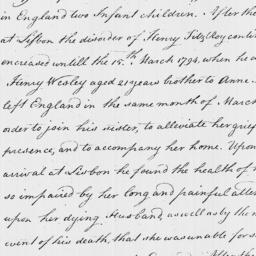 in England two Infant children. After the
at Lisbon the disorder of Henry FitzRoy conti
encreased untill the 15.th March 1794, when he
Henry Wesley aged 21 years brother to Anne
left England in the same month of March
order to join his sister, to alleviate her grief
presence, and to accompany her home. Upon
arrival at Lisbon he found the health of
so impaired by her long and painful atten
upon her dying Husband, as well as by the
event of his death, that she was unable for s